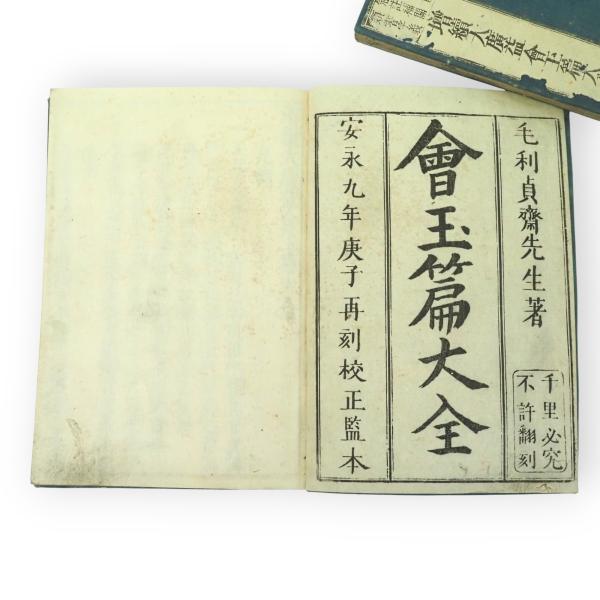 毛利貞齋先生著
千里必究
不許翻刻
會玉篇大全
安永九年庚子再刻校正監本
增續大廣益會玉篇大